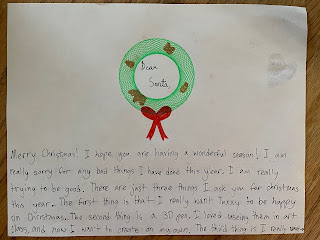 Dear
Santa,
Merry Christmas! I hope you are having a wonderful season! I am
really sorry for any bad things I have done this year. I am really
trying to be good. There are just three things I ask you for christmas
this year. The first thing is that I really want to be happy
on Christmas. The second thing is a 3D pen. I loved useing them in art
class, and now I want to create on my own. The third thing is I really